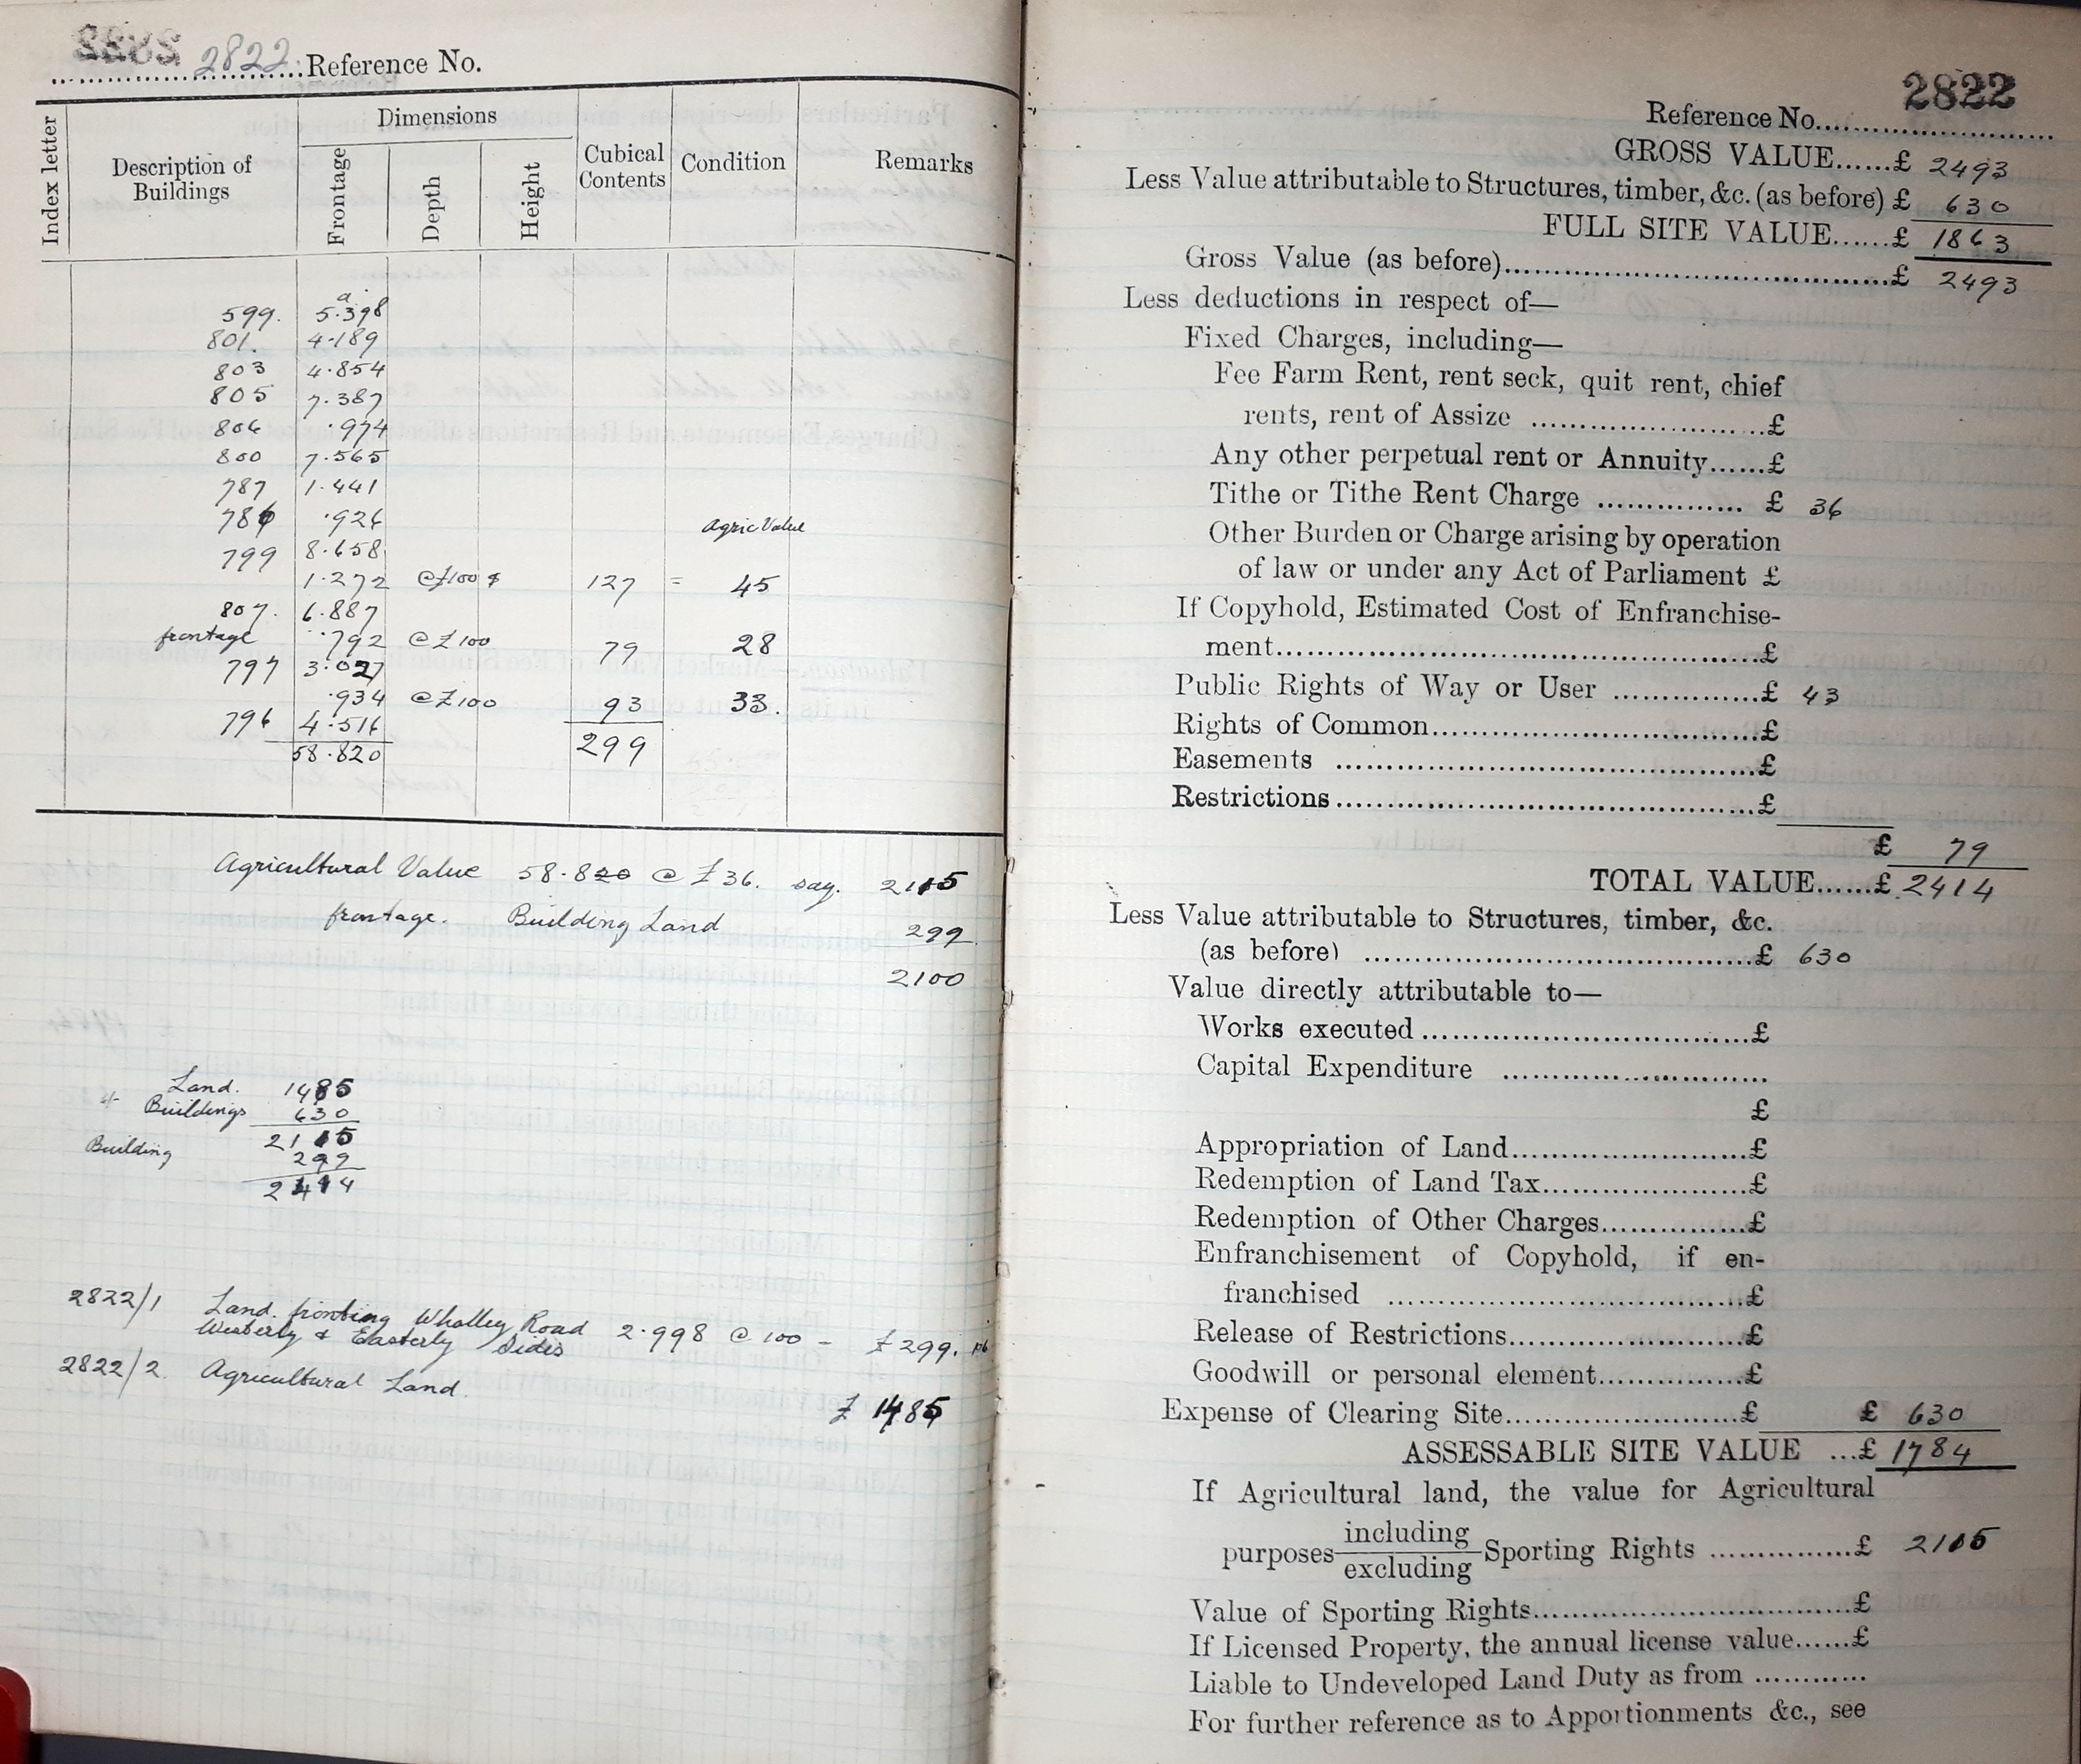 2822 Reference No.
Index letter
Description of Buildings
Dimensions
Frontage
Depth
Height
Cubical Contents
Condition
Remarks
a
599. 5.398
801. 4.189
803 4.854
805 7.387
806 .974
800 7.565
787 1.441
786 .926
Agric Value
799 8.658
1.272 @ £100 127 = 45
807. 6.887
frontage .792 @ £100 79 28
797 3.027
.934 @ £100 93 33.
796 4.516
58.820 299
Agricultural Value 58.820 @ £36. say. 2115
frontage. Building Land 299
2100
Land. 1485
Buildings 630
2115
Building 299
2414
2822/1 Land fronting Whalley Road
Westerly & Easterly Sides 2.998 @ 100 = £299.
2822/2. Agricultural Land.
£ 1485
2822
Reference No.
GROSS VALUE......£ 2493
Less Value attributable to Structures, timber, &c. (as before) £ 630
FULL SITE VALUE......£ 1863
Gross Value (as before)......£ 2493
Less deductions in respect of—
Fixed Charges, including—
Fee Farm Rent, rent seck, quit rent, chief
rents, rent of Assize ......£
Any other perpetual rent or Annuity......£
Tithe or Tithe Rent Charge ......£ 36
Other Burden or Charge arising by operation
of law or under any Act of Parliament £
If Copyhold, Estimated Cost of Enfranchise-
ment......£
Public Rights of Way or User ......£ 43
Rights of Common......£
Easements ......£
Restrictions......£
£ 79
TOTAL VALUE......£ 2414
Less Value attributable to Structures, timber, &c.
(as before) ......£ 630
Value directly attributable to—
Works executed ......£
Capital Expenditure ......
£
Appropriation of Land......£
Redemption of Land Tax......£
Redemption of Other Charges......£
Enfranchisement of Copyhold, if en-
franchised ......£
Release of Restrictions......£
Goodwill or personal element......£
Expense of Clearing Site......£ £ 630
ASSESSABLE SITE VALUE ...£ 1784
If Agricultural land, the value for Agricultural
purposes including
excluding Sporting Rights ......£ 2115
Value of Sporting Rights......£
If Licensed Property, the annual license value......£
Liable to Undeveloped Land Duty as from ......
For further reference as to Apportionments &c., see